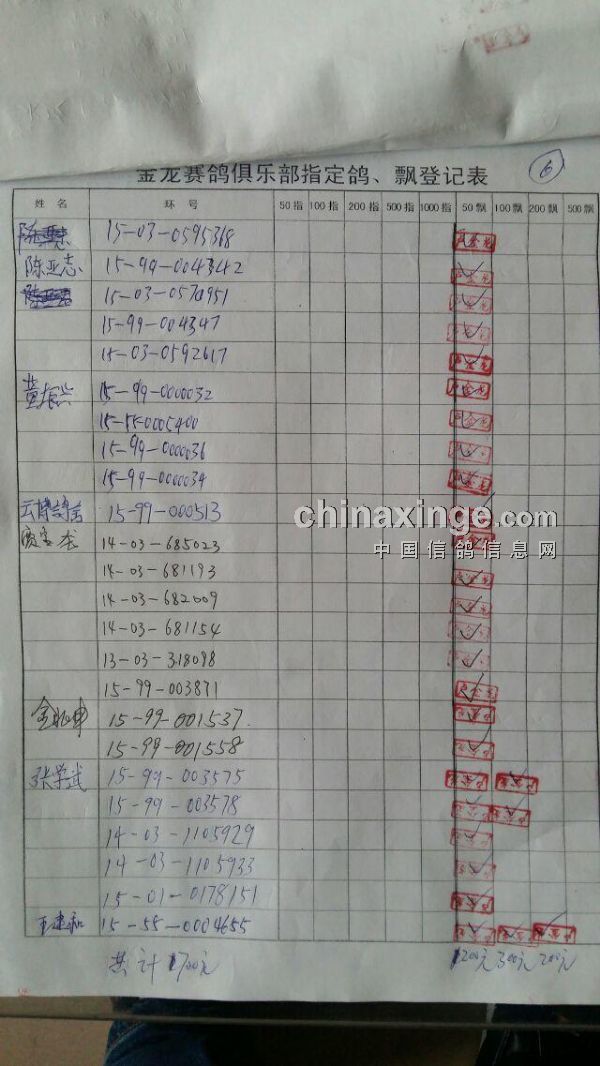 金龙赛鸽俱乐部指定鸽、飘登记表 6
姓名 环号 50指 100指 200指 500指 1000指 50飘 100飘 200飘 500飘
15-03-0595368
陈亚志 15-99-004342
15-03-0570951
15-99-004347
15-03-0592617
黄振兴 15-99-0000032
15-55-0005400
15-99-0000036
15-99-0000034
15-99-000513
14-03-685023
14-03-681193
14-03-682009
14-03-681154
13-03-318098
15-99-003871
15-99-001537
15-99-001558
张学武 15-99-003575
15-99-003578
14-03-1105929
14-03-1105933
15-01-0178151
王建和 15-55-0004655
共计1700元 1200元 300元 200元
chinaxinge.com
中国信鸽信息网